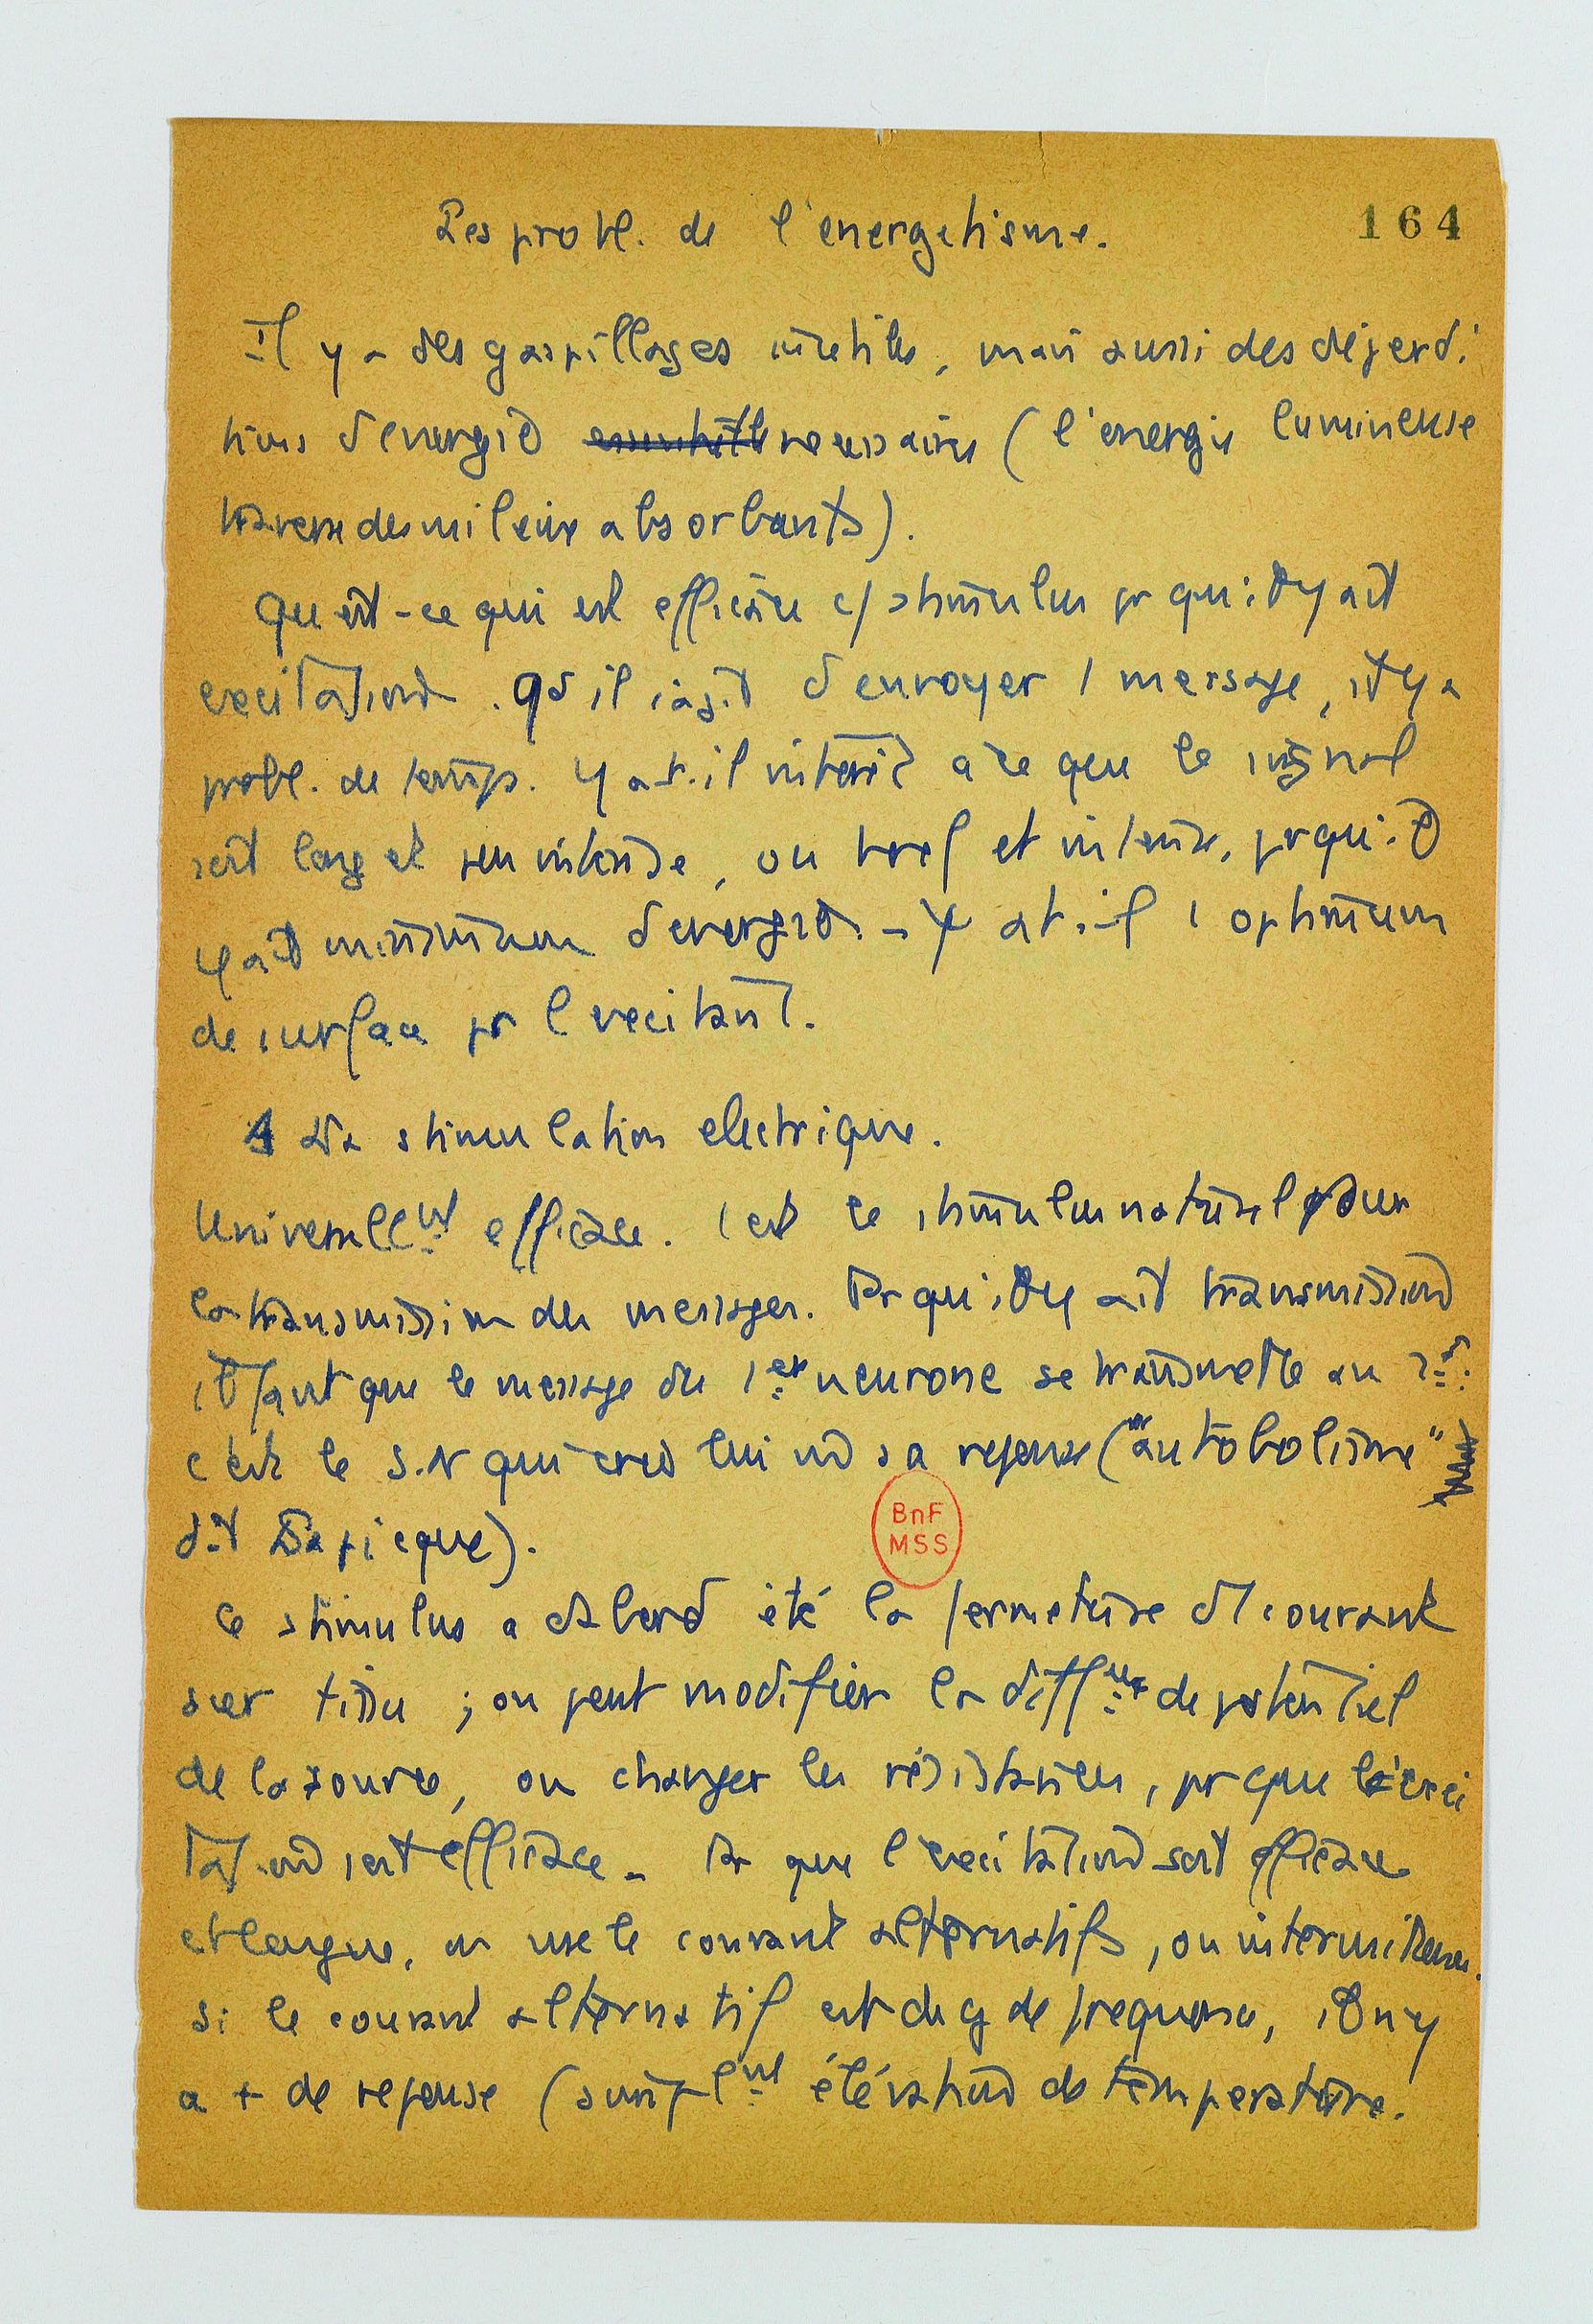 Les probl. de l'energetisme.
164
Il y a des gaspillages inutiles, mais aussi des déperdi
tions d'energie necessaires (l'energie lumineuse
traverse des milieux absorbants).
Qu'est-ce qui est efficace c/ stimulus pr qu'il y ait
excitation. Qd il s'agit d'envoyer 1 message, il y a
probl. de temps. Y a t-il intérêt à ce que le signal
soit long et peu intense, ou bref et intense, pr qu'il
y ait minimum d'energie. - Y a t-il 1 optimum
de surface pr l'excitant.
1 La stimulation electrique.
Universellnt efficace. C'est le stimulus naturel pour
la transmission des messages. Pr qu'il y ait transmission
il faut que le message du 1er neurone se transmette au 2d.
c'est le S.N qui cree lui m sa reponse ("autobolisme"
dit Lapicque).
Ce stimulus a d'abord été la fermeture d'1 courant
sur tissu ; on peut modifier la diffnce de potentiel
de la source, ou changer les résistances, pr que l'exci
tation soit efficace - Pr que l'excitation soit efficace
et longue, on use le courant alternatifs, ou intermittents.
Si le courant alternatif est de gde frequence, il n'y
a + de reponse (simplnt élévation de température.
BnF
MSS